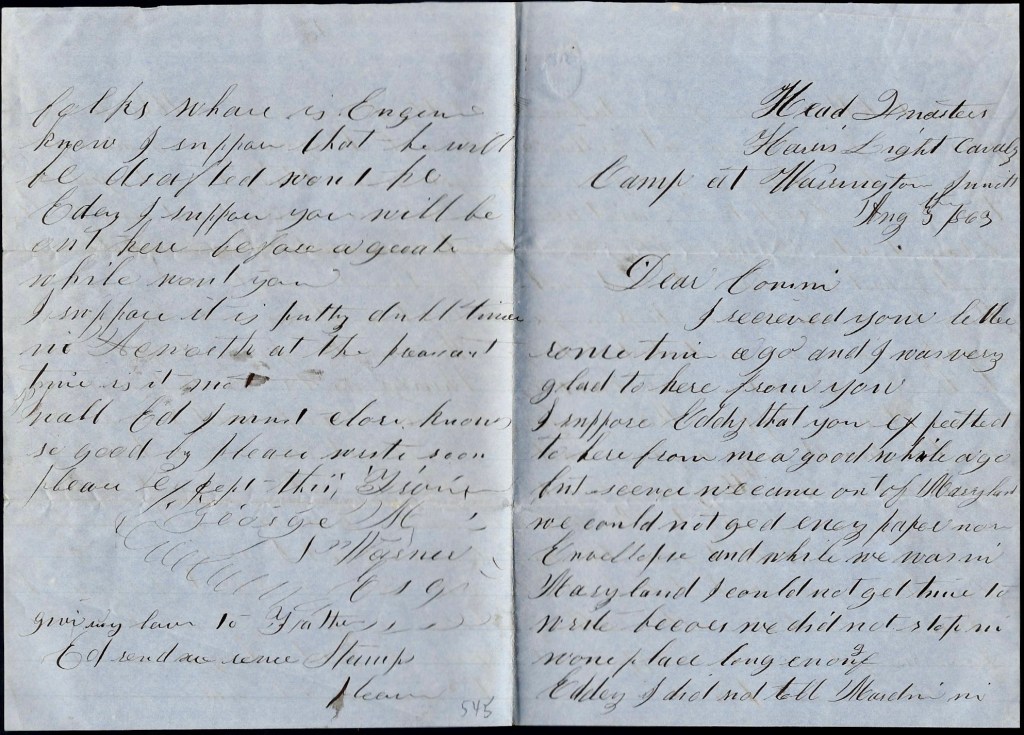 Head Quarters
Haris Light Cavaly
Camp at Warrington Junctt
Aug 5th 1863
Dear Cousin
I receieved your letter
some time ago and I was very
glad to here from you
I suppose Eddy that you expectted
to here from me a good while ago
but seence we came out of Maryland
we could not ged eney paper nor
Envellope and while we was in
Maryland I could not get time to
write becoes we did not stop in
wone place long enough
Eddey I did not tell in
folks whare is Eugene
know I suppose that he will
be drafted wont he
Edey I suppose you will be
out here before a greate
while wont you
I suppose it is putty dull times
in at the preasant
time is it not
wall Ed I must close know
so good by pleace write soon
pleace except this from
George M
Warner
Esqr
give my love to Father
Ed send me some Stamps
pleace
545